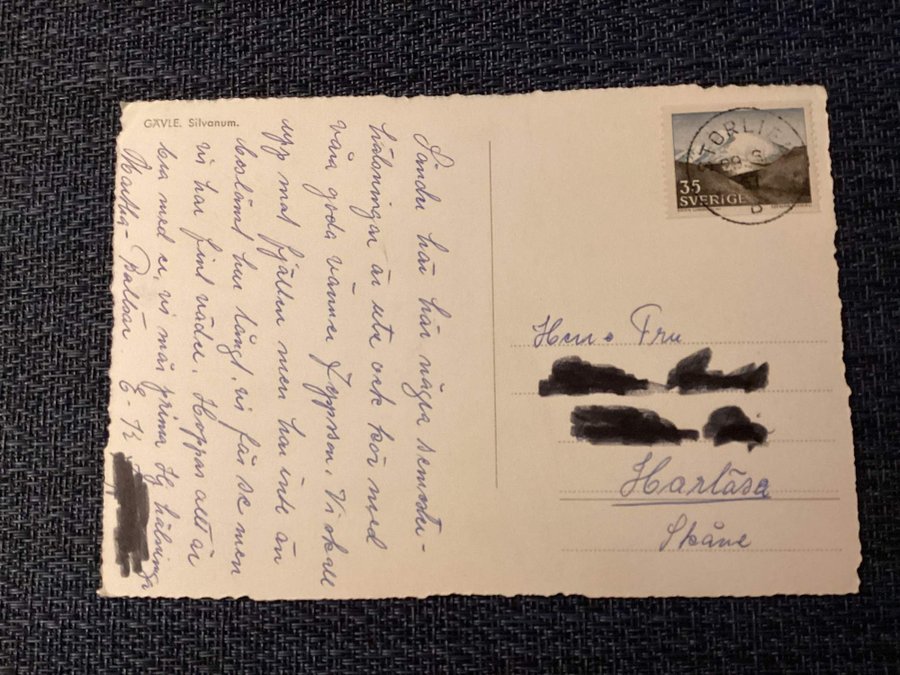 GÄVLE. Silvanum.
Sänder här här några semester-
hälsningar är ute och kör med
våra goda vänner Jeppson. Vi skall
upp mot fjällen men har inte än
bestämt hur långt, vi får se men
vi har fint väder. Hoppas allt är
bra med er, vi mår prima Hj hälsningar
Martha-Baltsar E-K
STORLIE
29.6
B
35
SVERIGE
Herr o Fru
Harlösa
Skåne